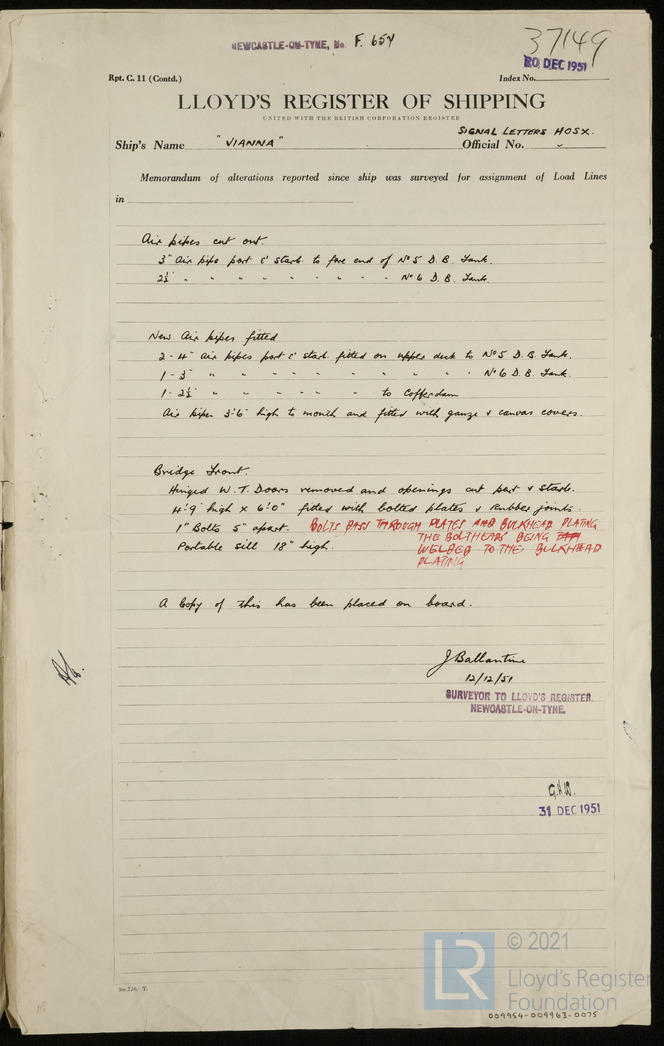 NEWCASTLE-ON-TYNE, No. F. 654
37149
20 DEC 1951
Rpt. C. 11 (Contd.)
Index No.
LLOYD'S REGISTER OF SHIPPING
UNITED WITH THE BRITISH CORPORATION REGISTER
SIGNAL LETTERS HOSX.
Ship's Name "VIANNA" Official No. -
Memorandum of alterations reported since ship was surveyed for assignment of Load Lines
in
Air pipes cut out.
3" Air pipe port & starb. to fore end of No 5 D.B. Tank.
2½" " " " " " " " " No 6 D.B. Tank.
New Air pipes fitted
2 - 4" air pipes port & starb. fitted on upper deck to No 5 D.B. Tank.
1 - 3" " " " " " " " " " No 6 D.B. Tank.
1 - 2½" " " " " " to Cofferdam
Air pipes 3'-6" high to mouth and fitted with gauze & canvas covers.
Bridge Front.
Hinged W.T. Doors removed and openings cut port & starb.
4'-9" high x 6'-0" fitted with bolted plates & rubber joints.
1" Bolts 5" apart. BOLTS PASS THROUGH PLATES AND BULKHEAD PLATING
THE BOLTHEADS BEING
Portable sill 18" high. WELDED TO THE BULKHEAD
PLATING
A Copy of this has been placed on board.
J Ballantine
12/12/51
SURVEYOR TO LLOYD'S REGISTER
NEWCASTLE-ON-TYNE.
G.H.W.
31 DEC 1951
LR
© 2021
Lloyd's Register
Foundation
009954-009963-0075